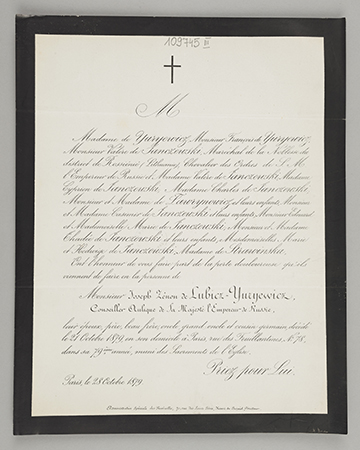 109745 III
M
Madame de Yuryewicz, Monsieur François de Yuryewicz,
Monsieur Valère de Janczewski, Maréchal de la Noblesse du
district de Rossiené, Lithuanie, Chevalier des Ordres de S. M.
l'Empereur de Russie et Madame Valère de Janczewska, Madame
Cyprien de Janczewska, Madame Charles de Janczewska,
Monsieur et Madame de et leurs enfants, Monsieur
et Madame Casimir de Janczewski et leurs enfants, Monsieur Edouard
et Mademoiselle Marie de Janczewski, Monsieur et Madame
Charles de Janczewski et leurs enfants, Mesdemoiselles Marie
et Hedwige de Janczewska, Madame de
Ont l'honneur de vous faire part de la perte douloureuse qu'ils
viennent de faire en la personne de
Monsieur Joseph Zénon de Lubicz-Yuryewicz,
Conseiller Aulique de Sa Majesté l'Empereur de Russie,
leur époux, père, beau-frère, oncle, grand oncle et cousin germain, décédé
le 27 Octobre 1879, en son domicile à Paris, rue des Feuillantines, Nº 78,
dans sa 79ème année, muni des Sacrements de l'Eglise.
Priez pour Lui.
Paris, le 28 Octobre 1879